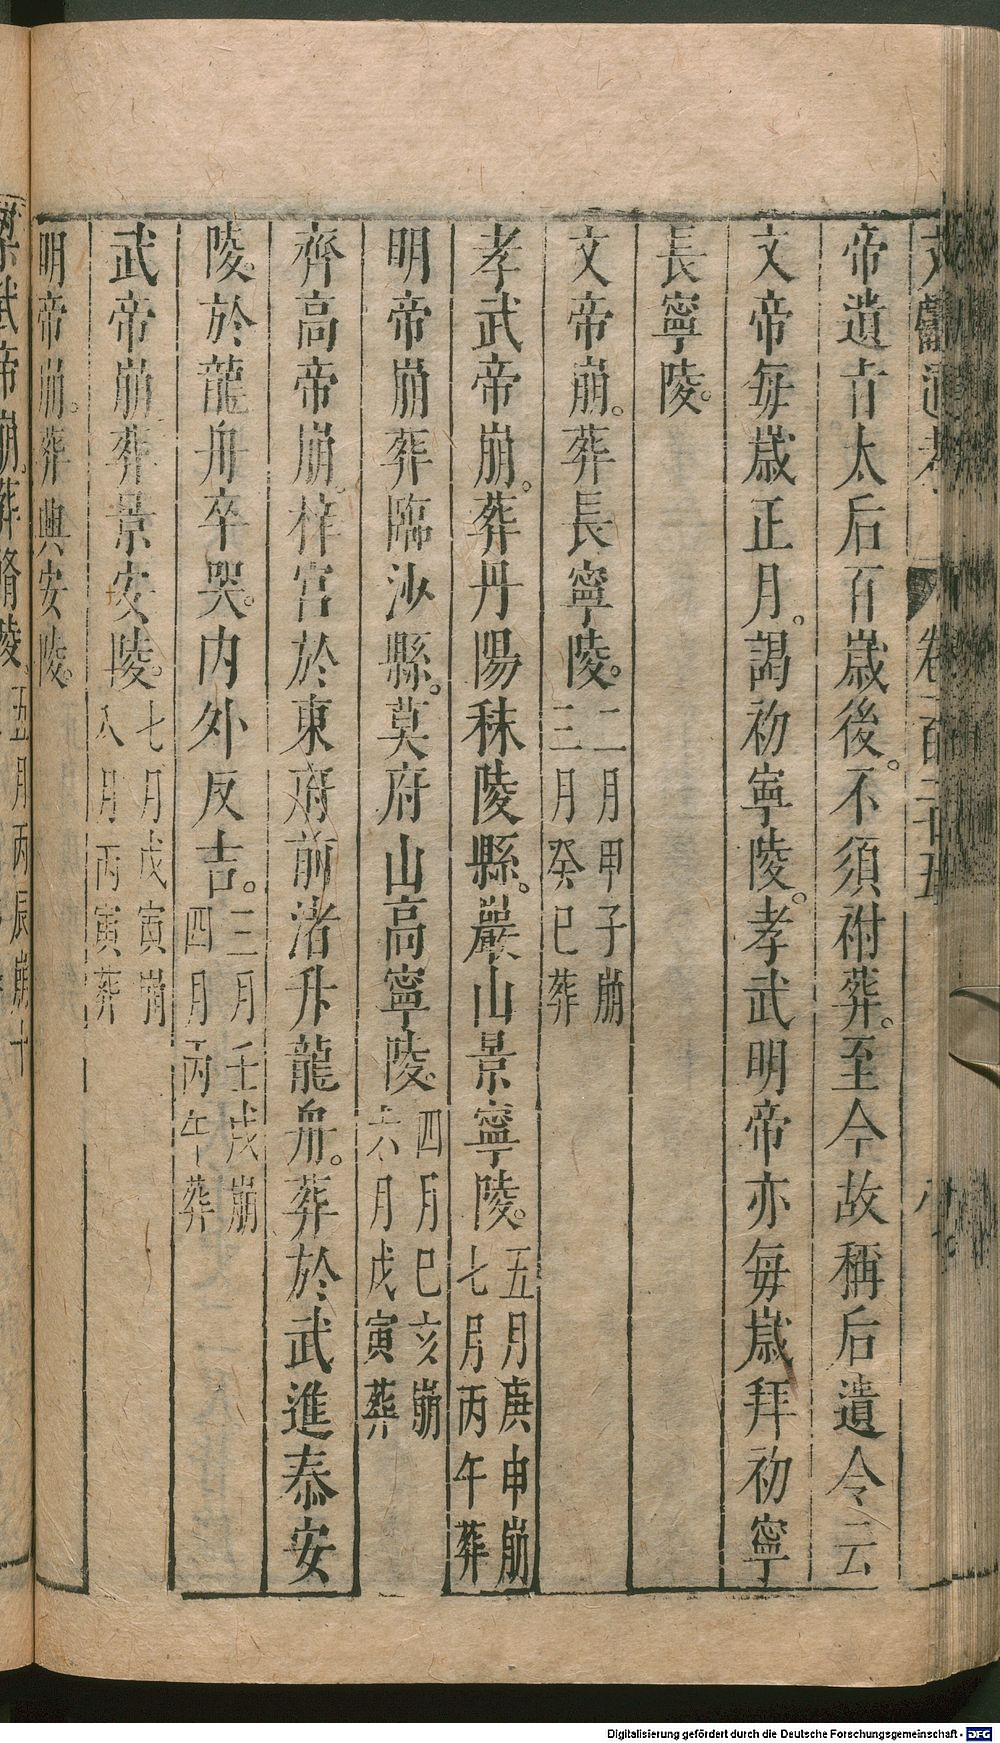 文獻通考 卷一百二十五
帝遺旨太后百歲後。不須祔葬。至今故稱后遺令云
文帝每歲正月。謁初寧陵。孝武明帝亦每歲拜初寧
長寧陵。
文帝崩。葬長寧陵。二月甲子崩三月癸巳葬
孝武帝崩。葬丹陽秣陵縣。巖山景寧陵。五月庚申崩七月丙午葬
明帝崩葬臨沙縣。莫府山高寧陵。四月巳亥崩六月戊寅葬
齊高帝崩。梓宮於東府前渚升龍舟。葬於武進泰安
陵。於龍舟卒哭。内外反吉。三月壬戌崩四月丙午葬
武帝崩葬景安陵。七月戊寅崩八月丙寅葬
明帝崩。葬興安陵。
梁武帝崩。葬脩陵。五月丙辰崩十
Digitalisierung gefördert durch die Deutsche Forschungsgemeinschaft - DFG